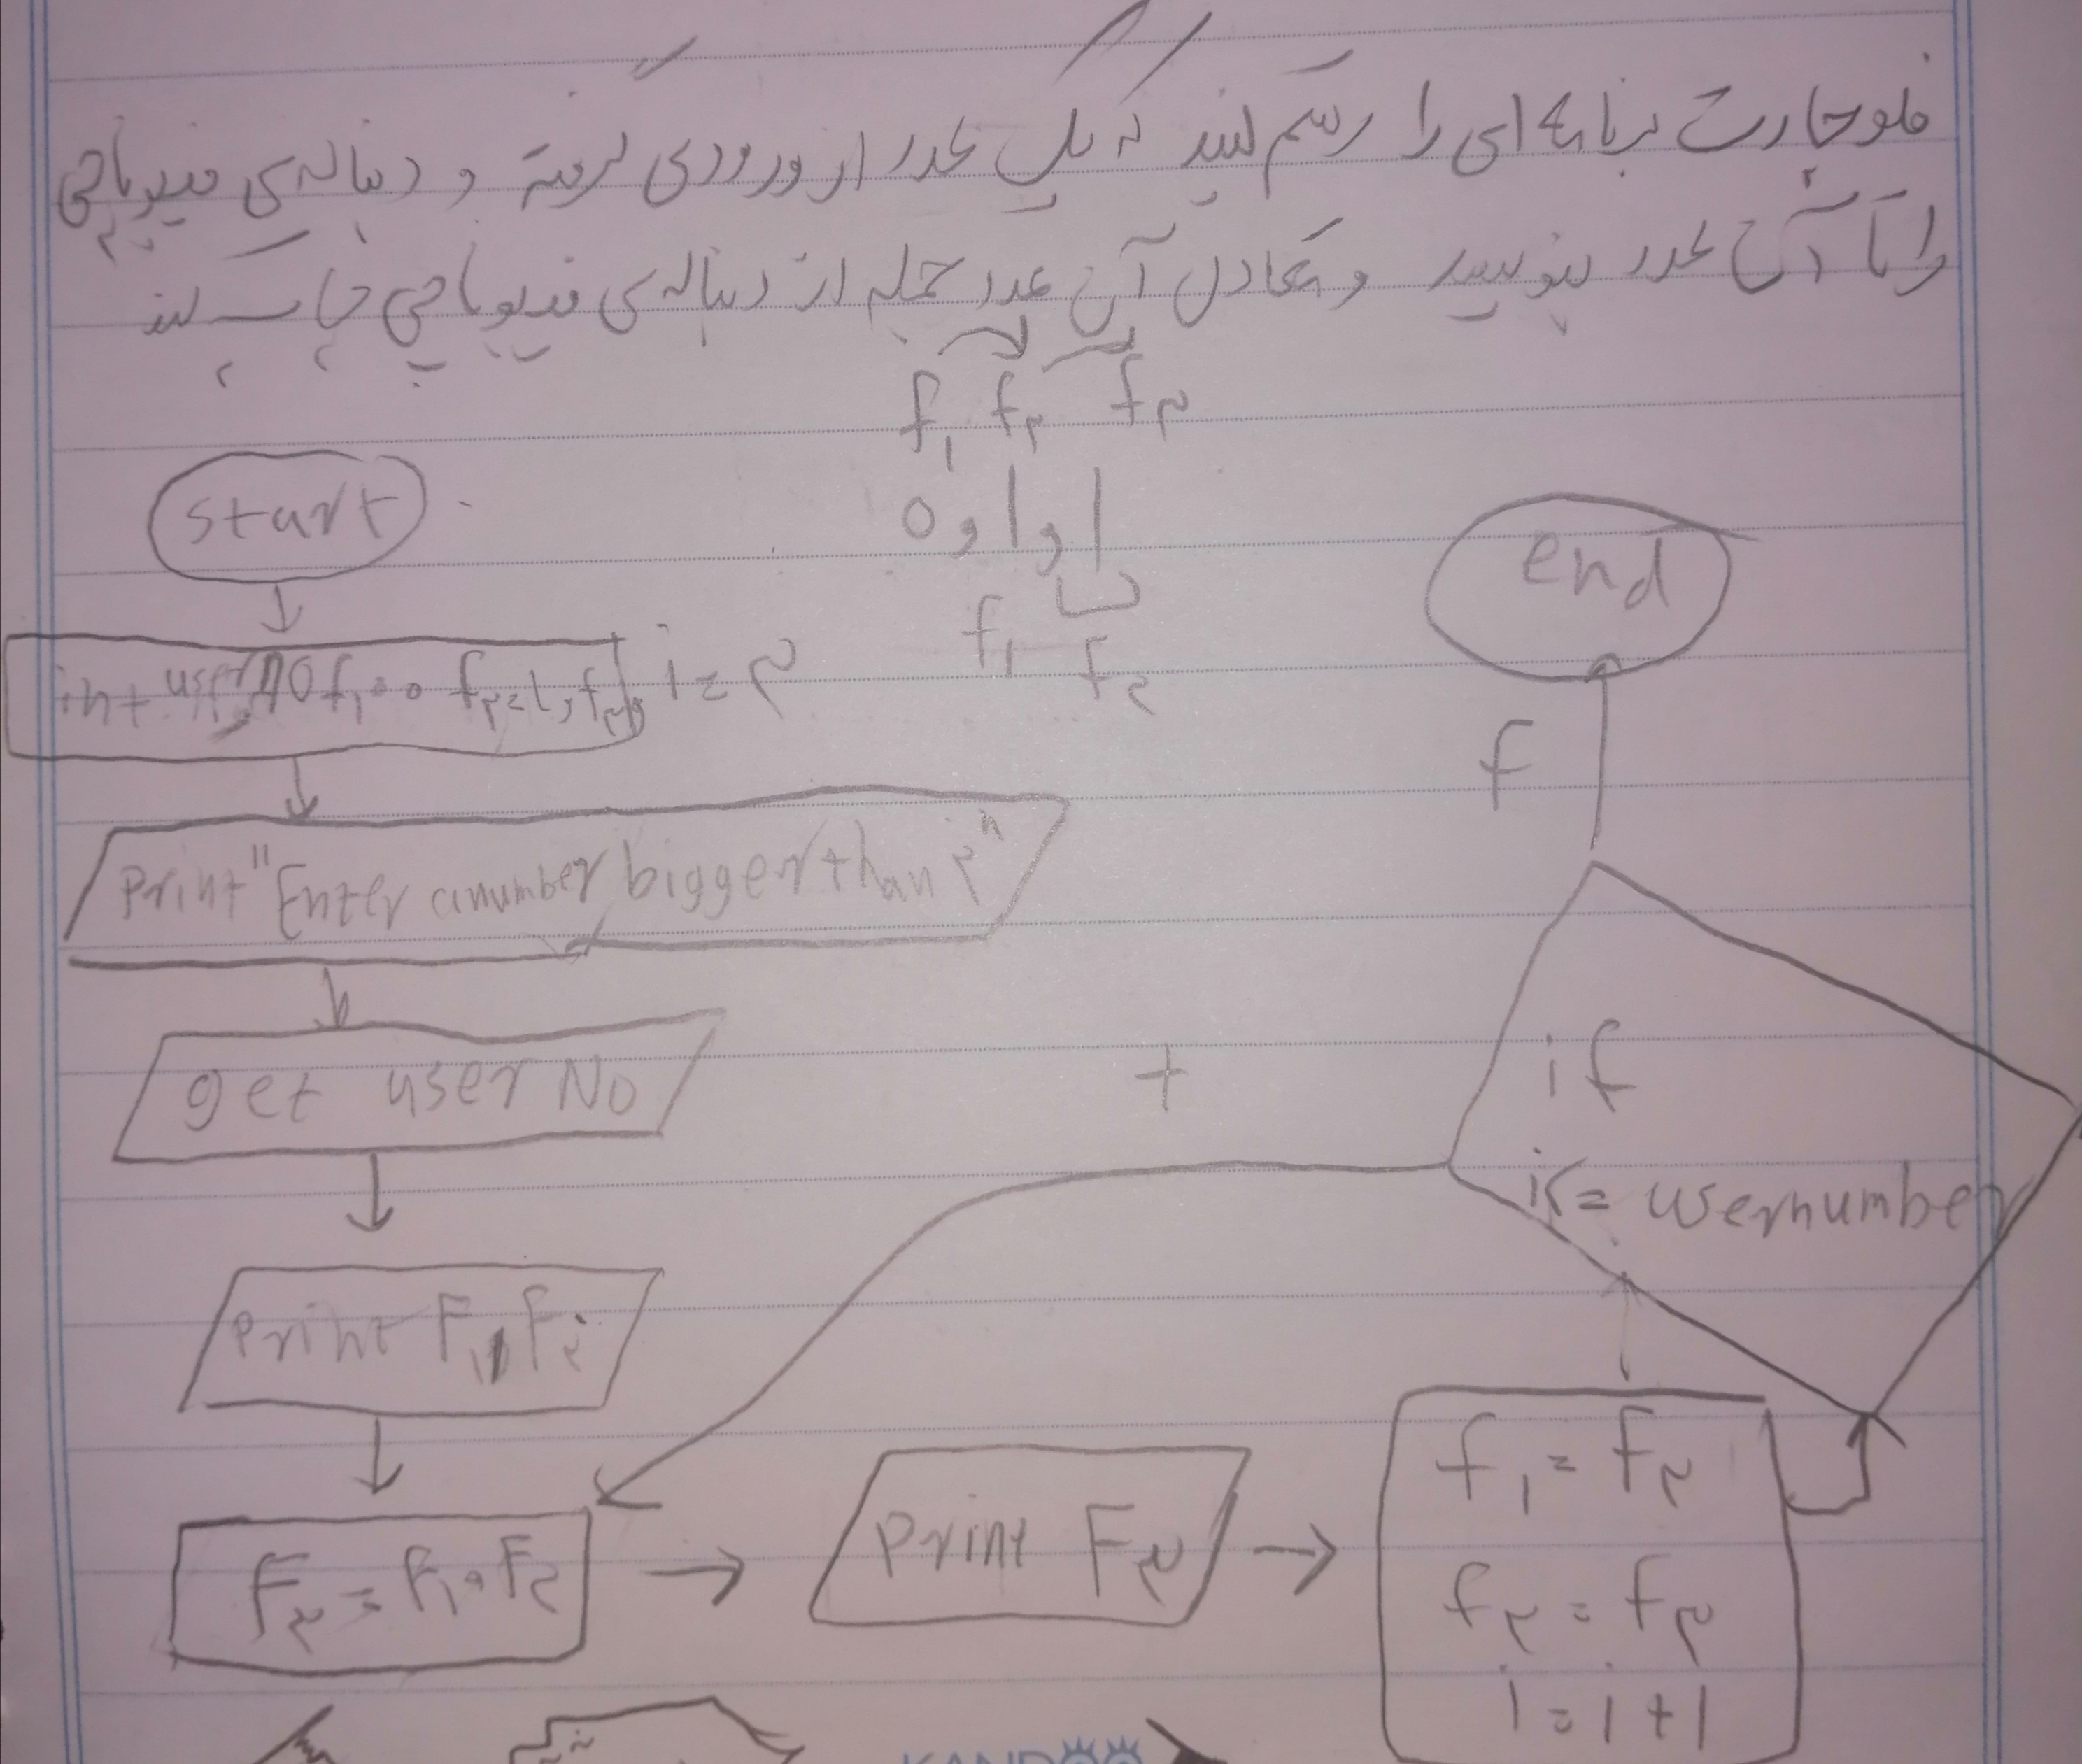 فلوچارت برنامه ای را رسم کنید که یک عدد از ورودی گرفته و دنباله ی فیبوناچی
را تا آن عدد بنویسید و معادل آن عدد جمله از دنباله ی فیبوناچی چاپ کند
f۱ f۲ f۳
0 و 1 و 1
f۱ f۲
start
int userNO f۱=0 f۲=1, f۳, i=۳
Print "Enter a number bigger than ۲"
get user No
Print F۱, F۲
Print F۳
f۱ = f۲
f۲ = f۳
i = i+1
if
i<= usernumber
t
f
end
KANDOO